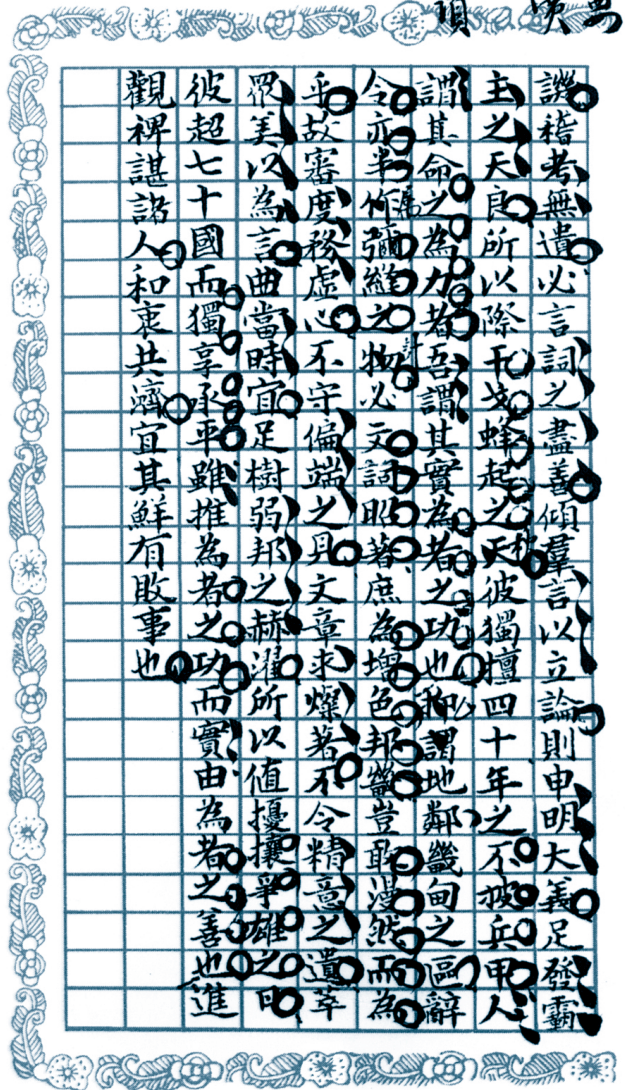 譏稽考無遺必言詞之盡善傾羣言以立論則申明大義足發霸
主之天良所以際干戈蜂起之天彼獨擅四十年之不被兵甲人
謂其命之為力者吾謂其實為者之功也抑謂地鄰畿甸之區辭
令亦半作彌縫之物必文詞昭著庶為增色邦畿豈敢漫然而為
乎故審度務虛心不守偏端之見文章求燦著不令精意之遺萃
眾美以為言曲當時宜足樹弱邦之赫濯所以值擾攘爭雄之日
彼超七十國而獨享承平雖推為者之功而實由為者之善也進
觀裨諶諸人和衷共濟宜其鮮有敗事也